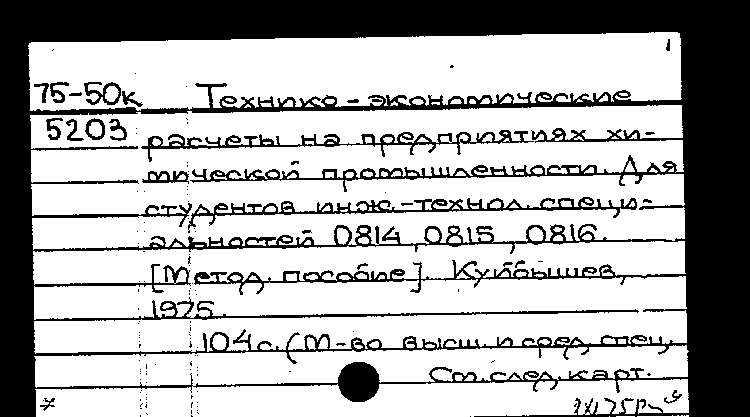 1
75-50к Технико-экономические
5203 расчеты на предприятиях хи-
мической промышленности. Для
студентов инж.-технол. специ-
альностей 0814, 0815, 0816.
[Метод. пособие]. Куйбышев,
1975.
104с. (М-во высш. и сред. спец.
См. след. карт.